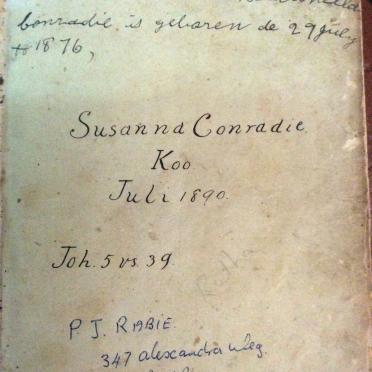 conradie is geboren de 29 july
1876,
Susanna Conradie.
Koo
Juli 1890.
Joh. 5 vs. 39.
P. J. RABIE.
347 alexandra weg.